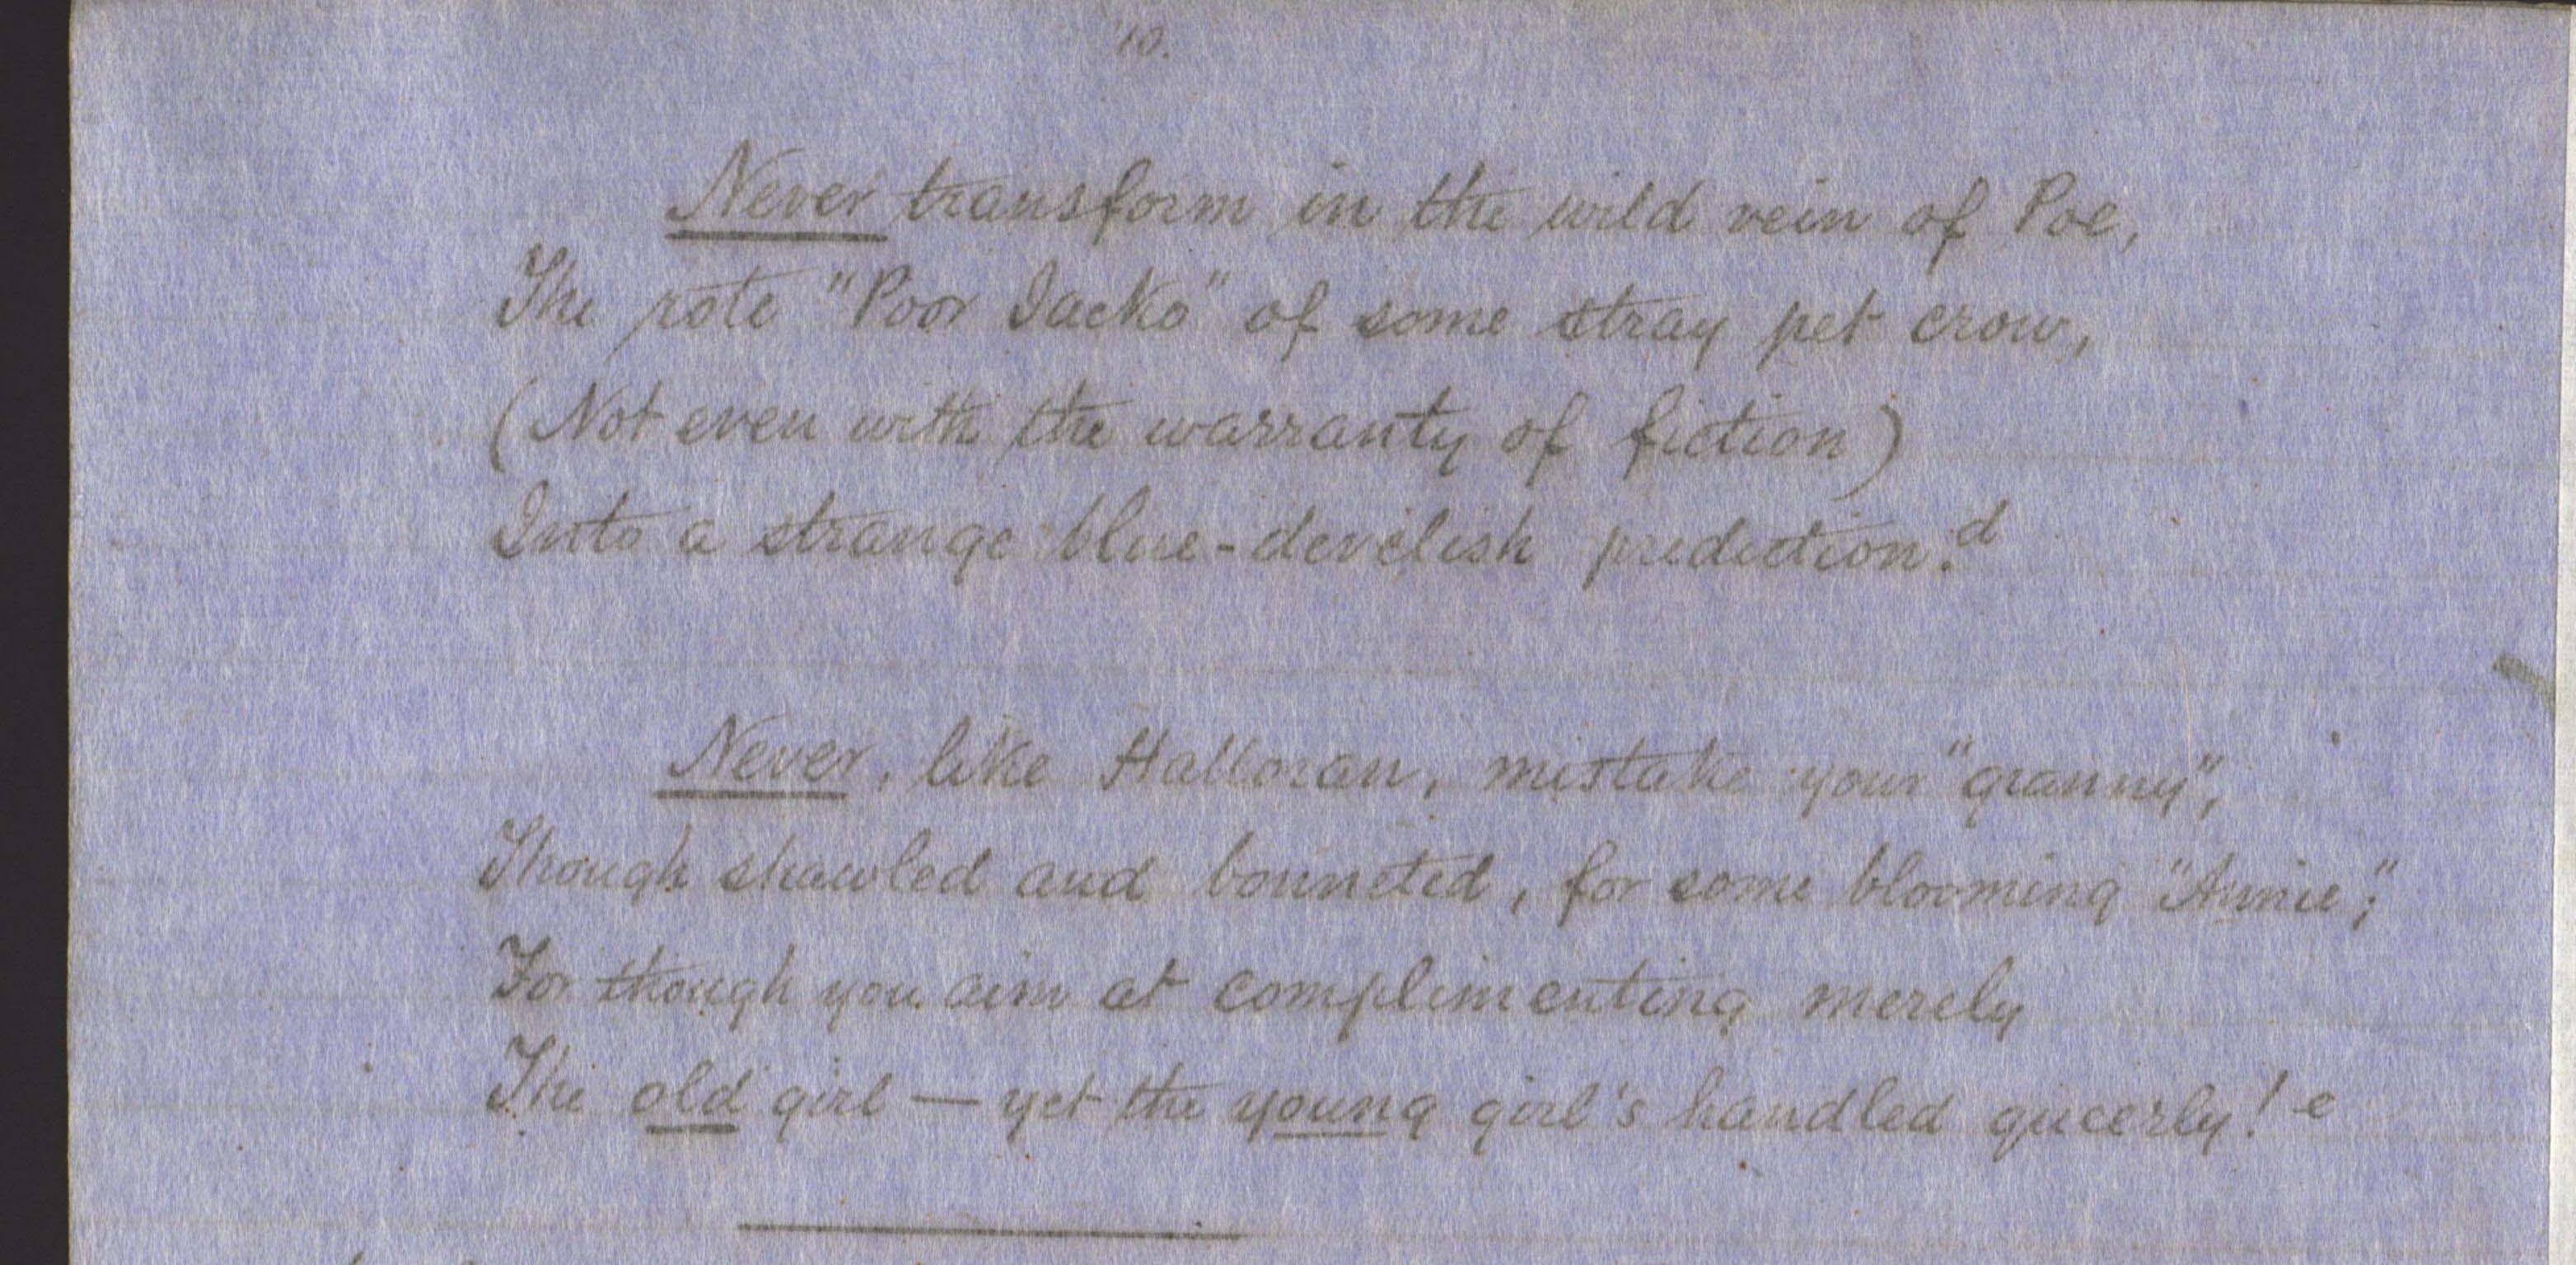 10.
Never transform in the wild vein of Poe,
The rote "Poor Jacko" of some stray pet crow,
(Not even with the warranty of fiction)
Into a strange blue-develish prediction.d
Never, like Halloran, mistake your "granny",
Though shawled and bonneted, for some blooming "Annie";
For though you aim at complimenting merely
The old girl — yet the young girl's handled queerly! e